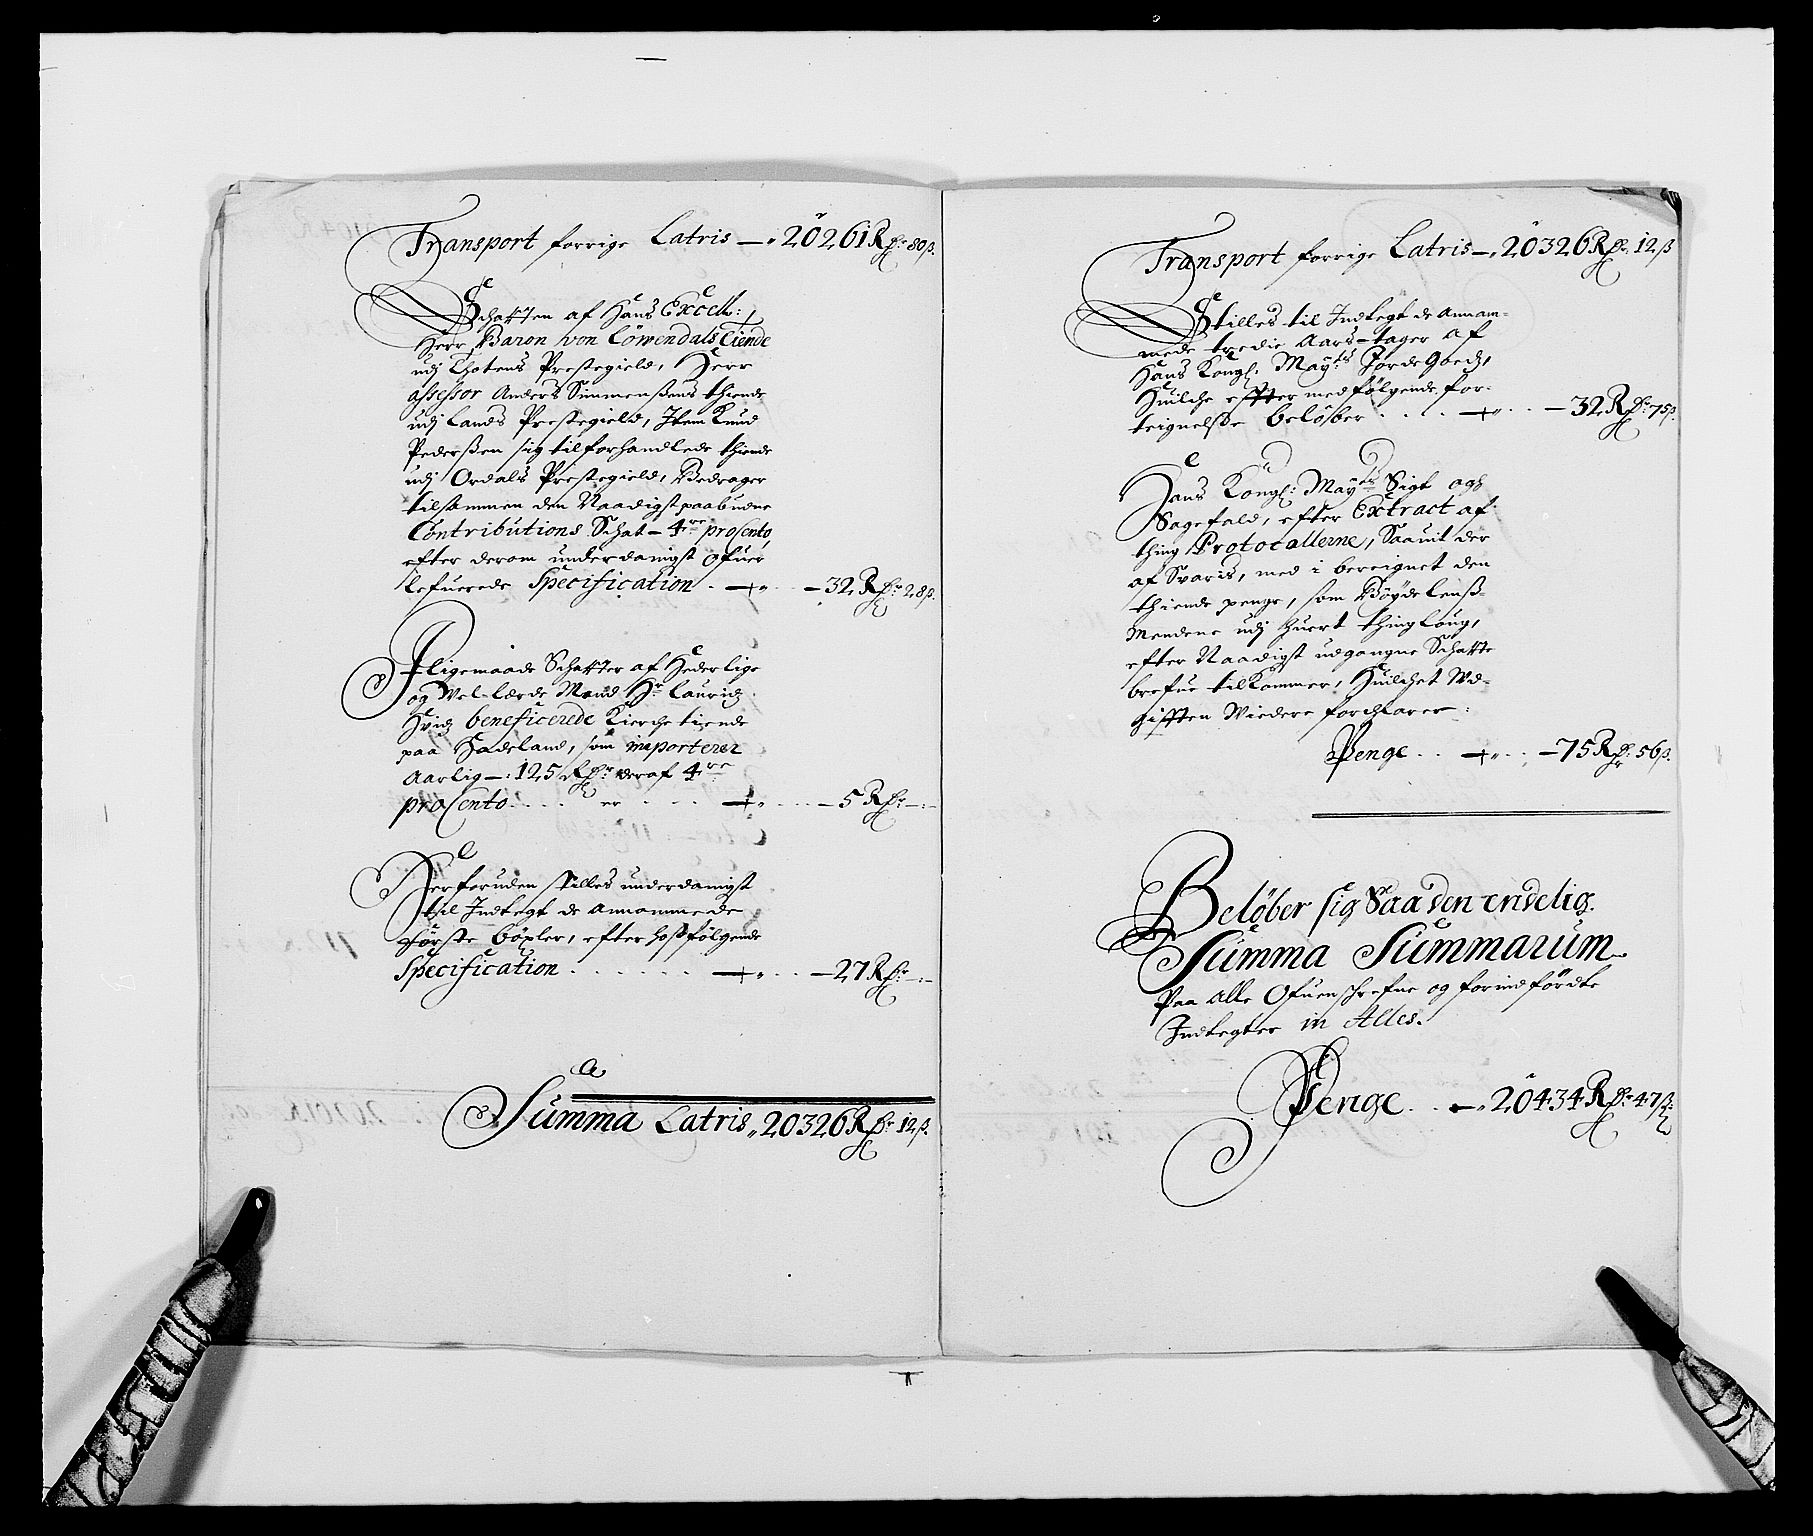 Transport forrige Latris — 20261 Rdr 80 ß.
Schatten af Hans Excell:
Herr Baron von Löwendals Tiende
udj Thotens Prestegield, Herr
assessor Anders Simmenßens thiende
udj Lands Prestegield, Item Knud
Pederßen sig tilforhandlede thiende
udj Ordals Prestegield, Bedrager
tilsammen den Naadigst paabudne
Contributions Schat – 4re proCento,
efter derom underdanigst ofuer
lefuerede Specification . — 32 Rdr 28 ß.
Iligemaade Schatter af Hederlige
og Wel-lærde Mand Hr Lauridz
Hvidz beneficerede Kierche tiende
paa Hadeland, som importerer
Aarlig —: 125 Rdr deraf 4re
proCento . . . . er . . . . — 5 Rdr —:—
Herforuden stilles underdanigst
till Indtegt de Annammede
förste böxler, efter hosfölgende
Specification . . . . . . — 27 Rdr —:—
Summa Latris „ 20326 Rdr 12 ß.
Transport forrige Latris — 20326 Rdr 12 ß
Stilles til Indtegt de Annam-
mede tredie Aars-tager af
Hans Kongl: Mayts Jordegoedz,
Huilche effter medfölgende for-
teignelsse belöber . . . . — 32 Rdr 75 ß.
Hans Kongl: Mayts Sigt och
Sagefald, efter Extract af
thing Protocallerne, Saauit der
af Svaris, med i bereignet den
thiende penge, som Böyde lenß-
Mendene udj huert thinglaug,
efter Naadigst udgangne Schatte
brefue tilkommer, Huilchet Ud-
gifften Widere forchlarer:
Penge . . — 75 Rdr 56 ß.
Belöber sig Saa den endelig.
Summa Summarum
Paa Alle Ofuenschrefne og forindfördte
Indtegter in Alles.
Penge . . . — 20434 Rdr 47 ß